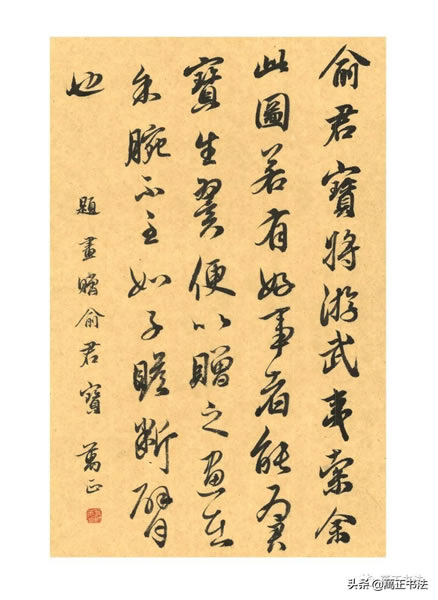 俞君寶將游武夷索余
此圖若有好事者能為
寶生翼便以贈之画在
余腕不至如子瞻断臂
也
題畫贈俞君寶 萬正
萬正书法
头条 @萬正书法